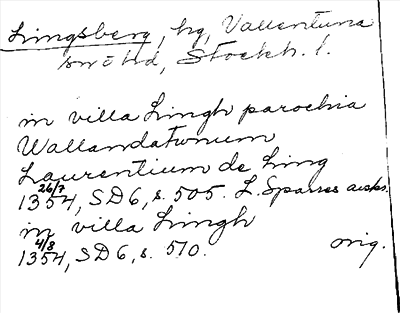 Lingsberg, hg, Vallentuna
sn o hd, Stockh. l.
in villa Lingh parochia
Wallandatunum
Laurentium de Ling
26/7
1354, SD6, s. 505. L. Sparres avskr.
in villa Lingh
4/8
1354, SD6, s. 510. orig.